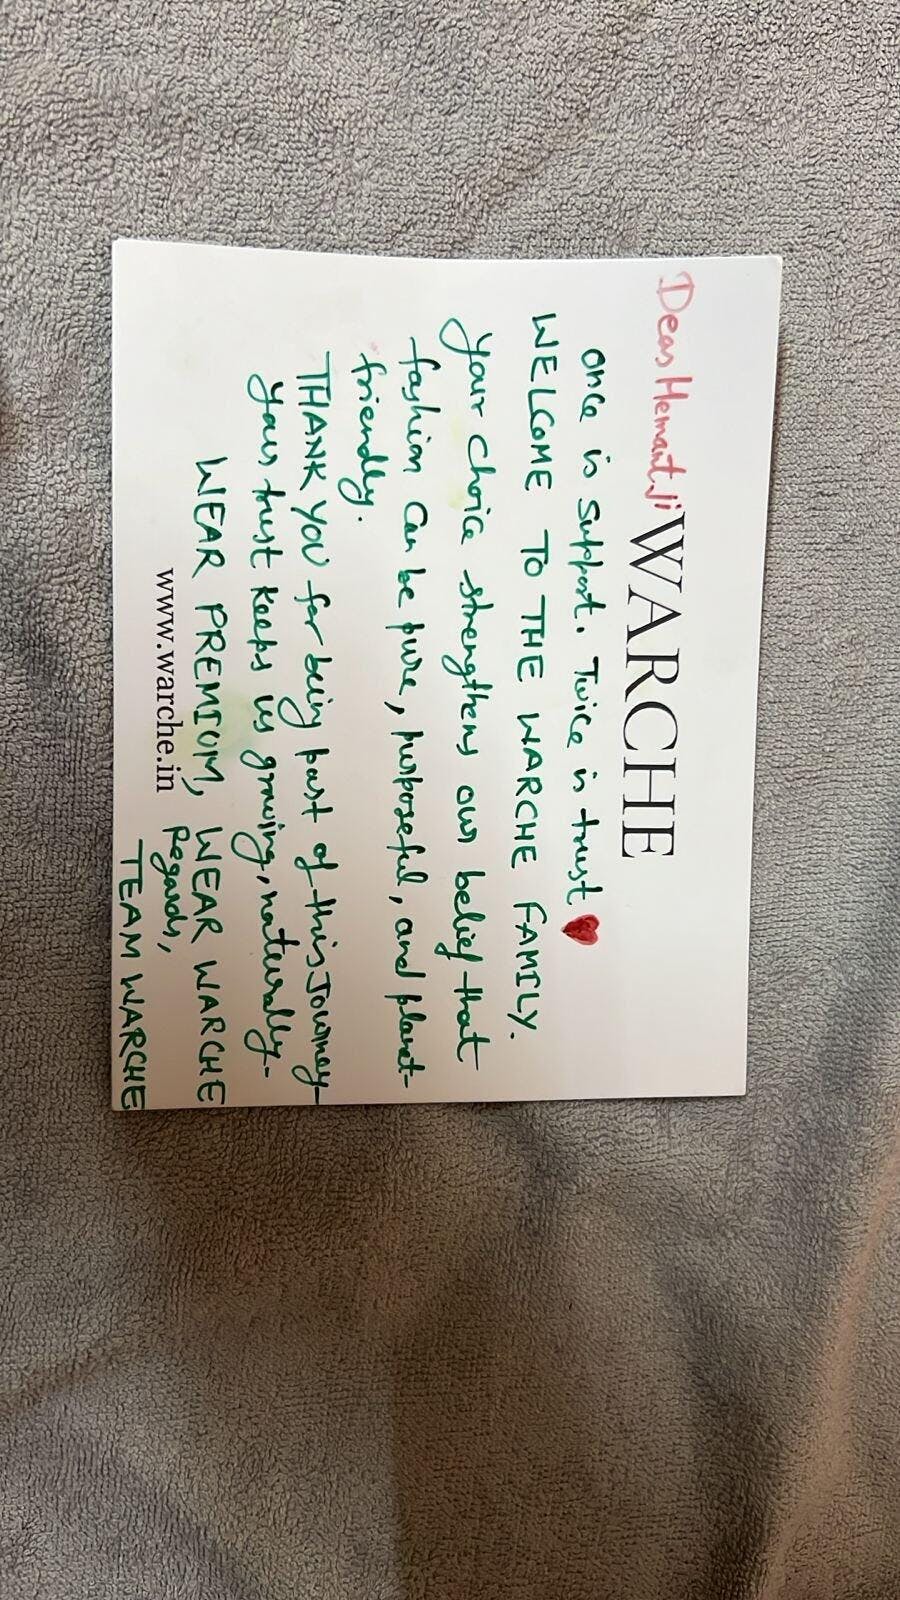 WARCHE
Dear Hemant Ji
once is support. Twice is trust
WELCOME TO THE WARCHE FAMILY.
Your choice strengthens our belief that
fashion can be pure, purposeful, and planet-
friendly.
THANK YOU for being part of this Journey-
Your trust keeps us growing, naturally-
WEAR PREMIUM, WEAR WARCHE
www.warche.in
Regards,
TEAM WARCHE